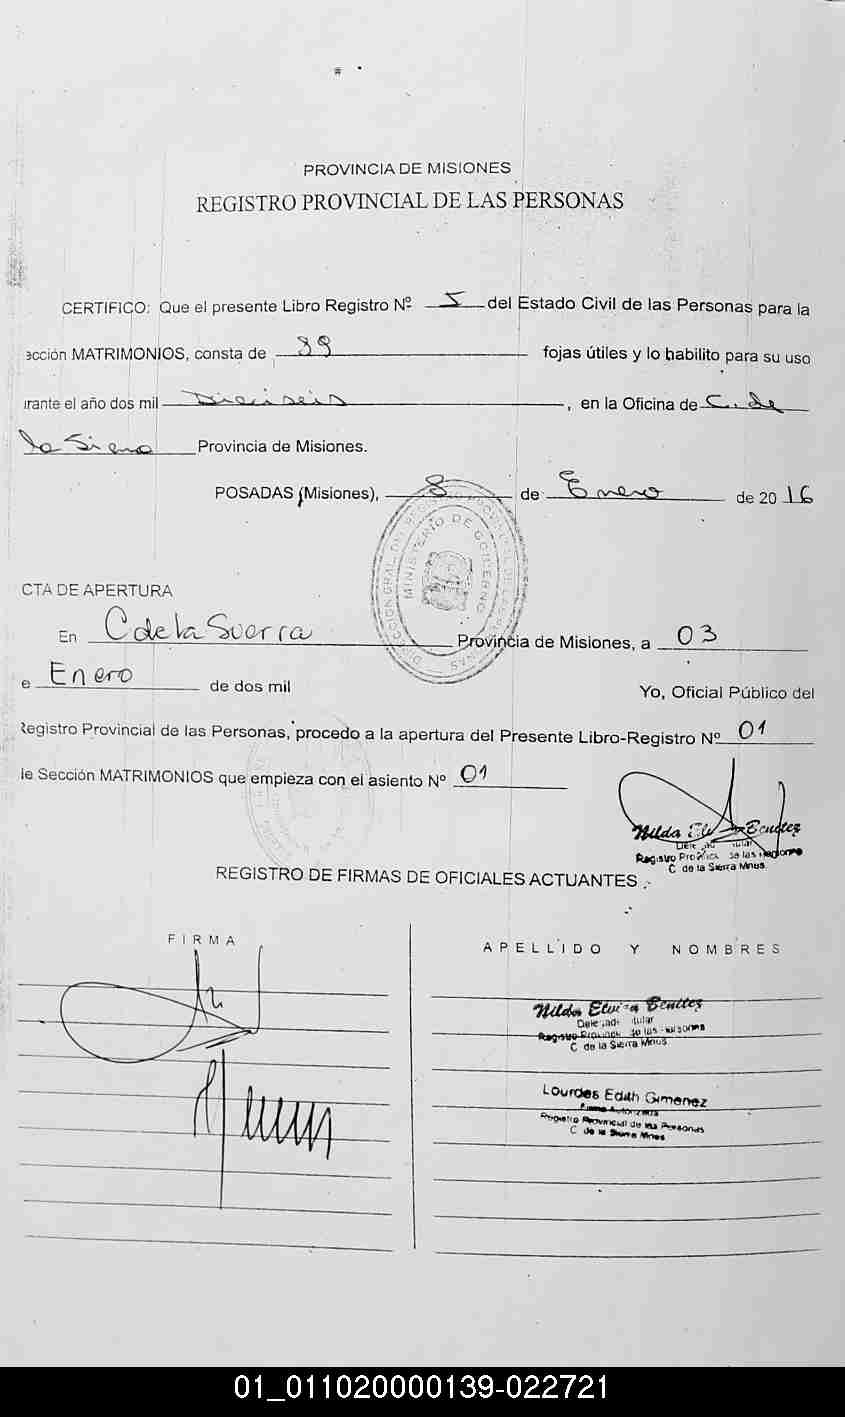 PROVINCIA DE MISIONES
REGISTRO PROVINCIAL DE LAS PERSONAS
CERTIFICO: Que el presente Libro Registro Nº 5 del Estado Civil de las Personas para la
ección MATRIMONIOS, consta de 99 fojas útiles y lo habilito para su uso
urante el año dos mil Dieciseis, en la Oficina de C. de
la Sierra Provincia de Misiones.
POSADAS (Misiones), 8 de Enero de 2016
DIRECCION GRAL. DEL REGISTRO PROVINCIAL DE LAS PERSONAS
MINISTERIO DE GOBIERNO
CTA DE APERTURA
En C de la Sierra Provincia de Misiones, a 03
e Enero de dos mil Yo, Oficial Público del
Registro Provincial de las Personas, procedo a la apertura del Presente Libro-Registro Nº 01
de Sección MATRIMONIOS que empieza con el asiento Nº 01
Nilda Benitez
Registro
C de la Sierra Mnes.
REGISTRO DE FIRMAS DE OFICIALES ACTUANTES
FIRMA
APELLIDO Y NOMBRES
Nilda Elvira Benitez
Registro de las Personas
C de la Sierra Mnes.
Lourdes Edith Gimenez
Firma Autorizada
Registro Provincial de las Personas
C de la Sierra Mnes
01_011020000139-022721